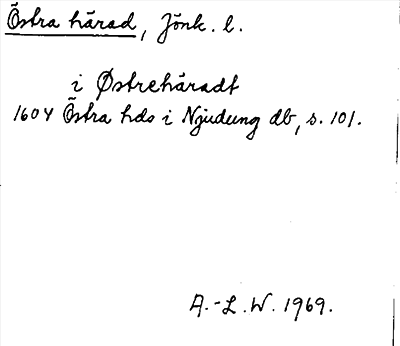 Östra härad, Jönk. l.
i Østrehäradt
1604 Östra hds i Njudung db, s. 101.
A.-L.W. 1969.